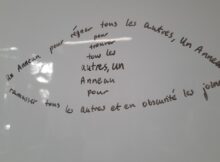 Anneau pour régner tous les autres, un Anneau
pour
trouver
tous les
autres, un
Anneau
pour
ramener tous les autres et en obscurité les